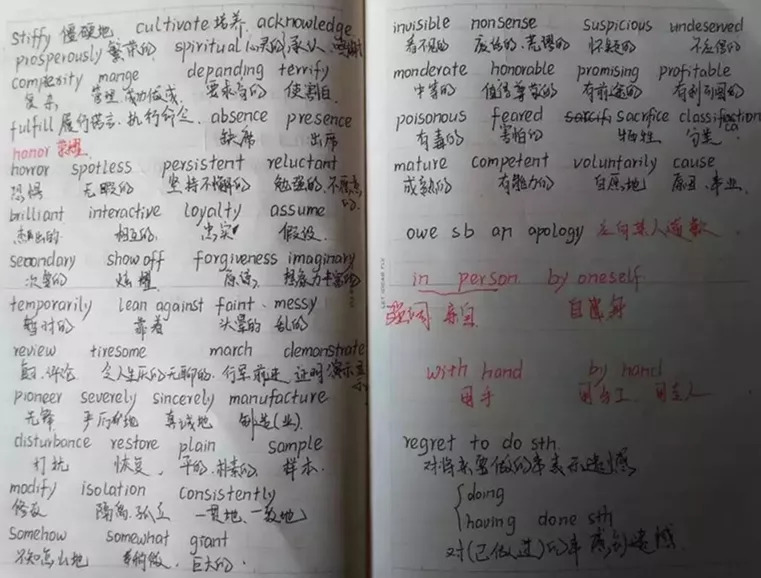 stiffy 僵硬地. cultivate 培养 acknowledge
prosperously 繁荣的 spiritual 心灵的 承认
compexity mange depanding terrify
复杂 管理.成功做成. 要求高的 使害怕.
fulfill 履行诺言.执行命令. absence presence
缺席 出席
honor 荣耀.
horror spotless persistent reluctant
恐惧 无暇的 坚持不懈的 勉强的.不愿意的.
brilliant interactive loyalty assume
杰出的 相互的. 忠实 假设.
secondary show off forgiveness imaginary
次要的 炫耀 原谅. 想象力丰富的
temporarily lean against faint、messy
暂时的 靠着 头晕的 乱的
review tiresome march demonstrate
评论 令人生厌的无聊的. 行军前进. 证明演示
pioneer severely sincerely manufacture
先锋 严厉地 真诚地 制造(业).
disturbance restore plain sample
打扰 恢复. 平的.朴素的. 样本.
modify isolation consistently
修改 隔离.孤立 一贯地.一致地
somehow somewhat giant
不知怎么地 有点 巨大的.
invisible nonsense suspicious undeserved
看不见的 废话的.荒谬的 怀疑的 不应得的
monderate honorable promising profitable
中等的 值得尊敬的 有前途的 有利可图的
poisonous feared sacrifice classification
有毒的 害怕的 牺牲 分类
mature competent voluntarily cause
成熟的 有能力的 自愿地 原因.事业.
owe sb an apology 应向某人道歉.
in person by oneself
强调 亲自 自己
with hand by hand
用手 用手工.
regret to do sth.
对将来要做的事表示遗憾.
doing
having done sth
对(已做过)的事感到遗憾.